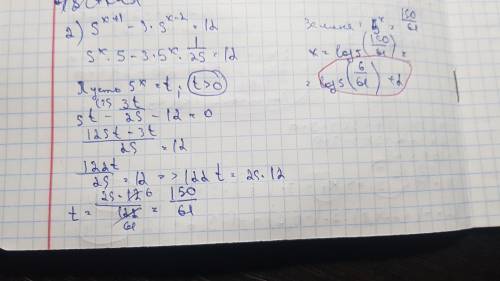 2) 5^{x+1} - 3 · 5^{x-2} = 12
5^x · 5 - 3 · 5^x · \frac{1}{25} = 12
Пусть 5^x = t; t>0
5t^{(25} - \frac{3t}{25} - 12 = 0
\frac{125t - 3t}{25} = 12
\frac{122t}{25} = 12 => 122t = 25 · 12
t = \frac{25 · 12 6}{122 61} = \frac{150}{61}
Замена: 5^x = \frac{150}{61}
x = log5(\frac{150}{61}) =
= log5(\frac{6}{61}) + 2